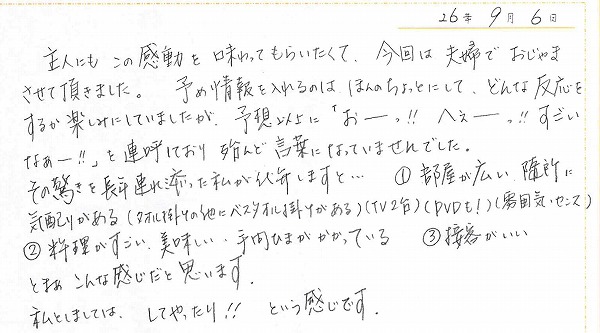 26年 9月 6日
主人にも この感動を 味わってもらいたくて、今回は 夫婦で おじゃま
させて頂きました。 予め情報を入れるのは ほんのちょっとにして、どんな反応を
するか楽しみにしていましたが、予想以上に「おーっ!! へぇーっ!! すごい
なぁー!!」を連呼しており 殆んど 言葉になっていませんでした。
その驚きを長年連れ添った私が代弁しますと… ①部屋が広い、随所に
気配りがある(タオル掛けの他にバスタオル掛けがある)(TV2台)(DVDも!)(雰囲気いいセンス)
②料理がすごい、美味しい、手間ひまがかかっている ③接客がいい
とまぁ こんな感じだと思います。
私としましては、してやったり!! という感じです。